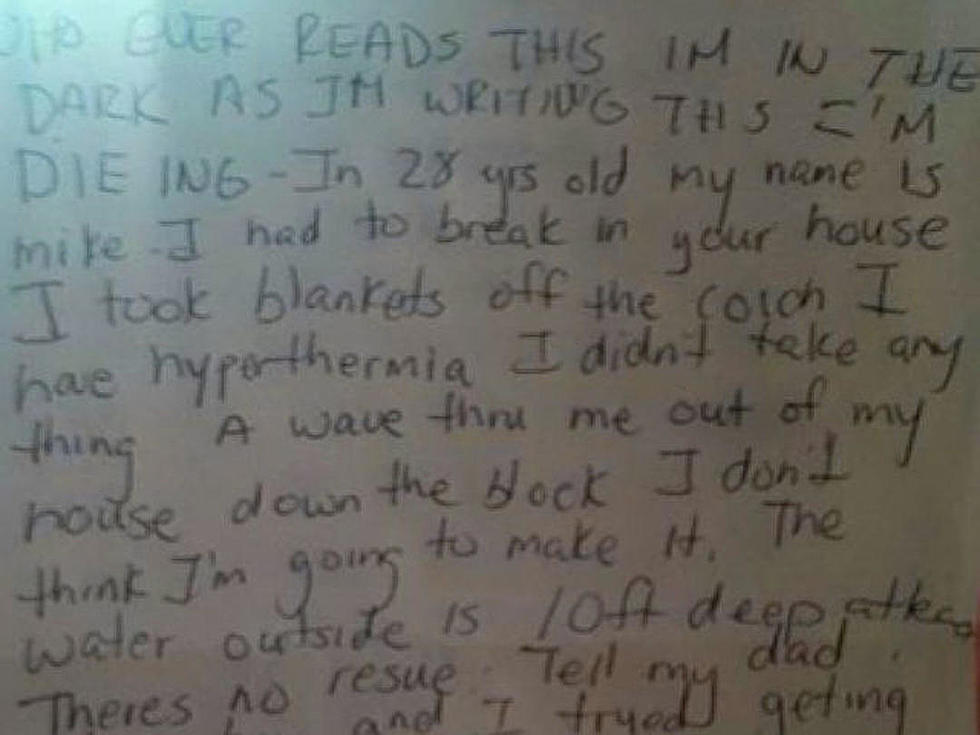 EVER READS THIS IM IN THE
DARK AS IM WRITING THIS I'M
DIE ING - Im 28 yrs old my name is
mike . I had to break in your house
I took blankets off the coich I
hae hyporthermia I didnt take any
thing A wave thru me out of my
house down the block I don't
think I'm going to make it. The
water outside is 10ft deep atlea
Theres no resue. Tell my dad
and I tryed geting